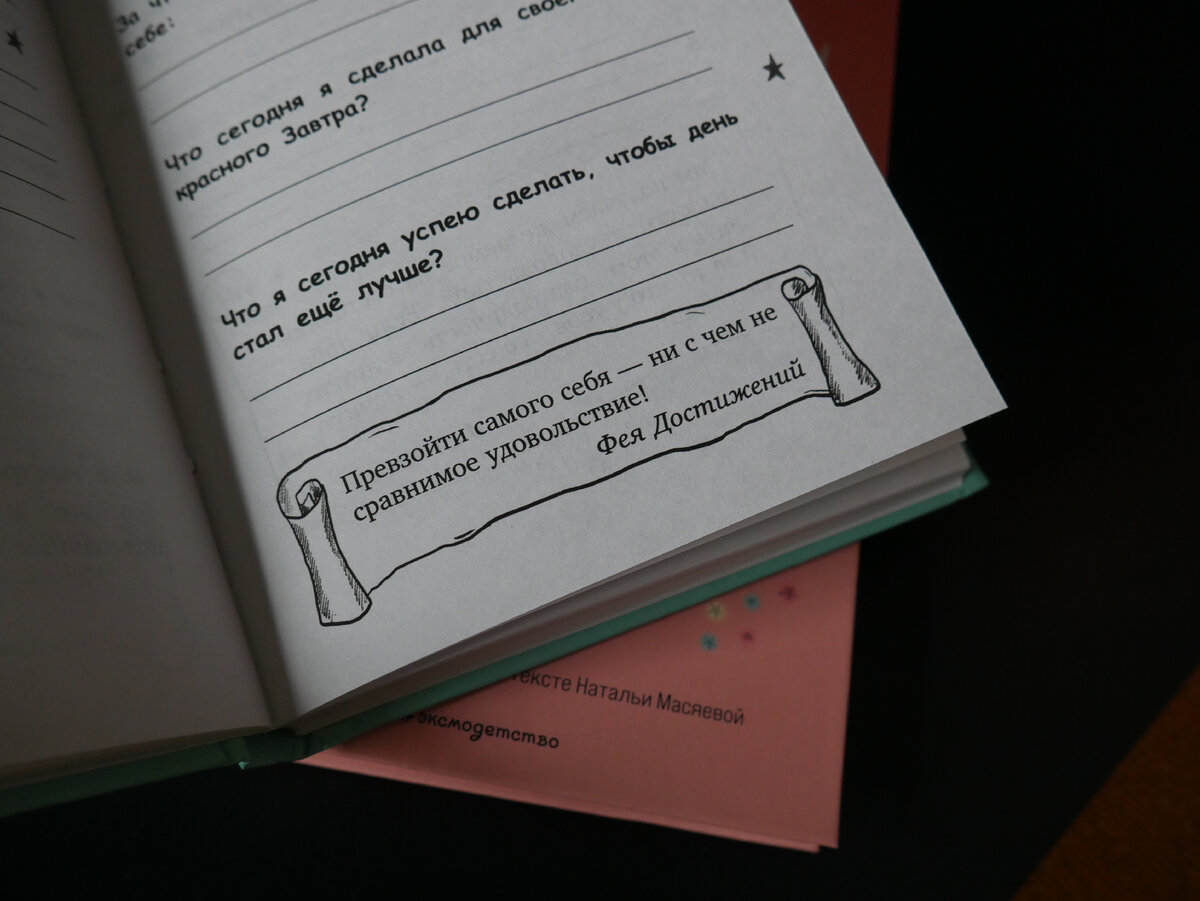 За
себе:
Что сегодня я сделала для
красного Завтра?
Что я сегодня успею сделать, чтобы день
стал ещё лучше?
Превзойти самого себя — ни с чем не
сравнимое удовольствие!
Фея Достижений
Натальи Масяевой
эксмодетство